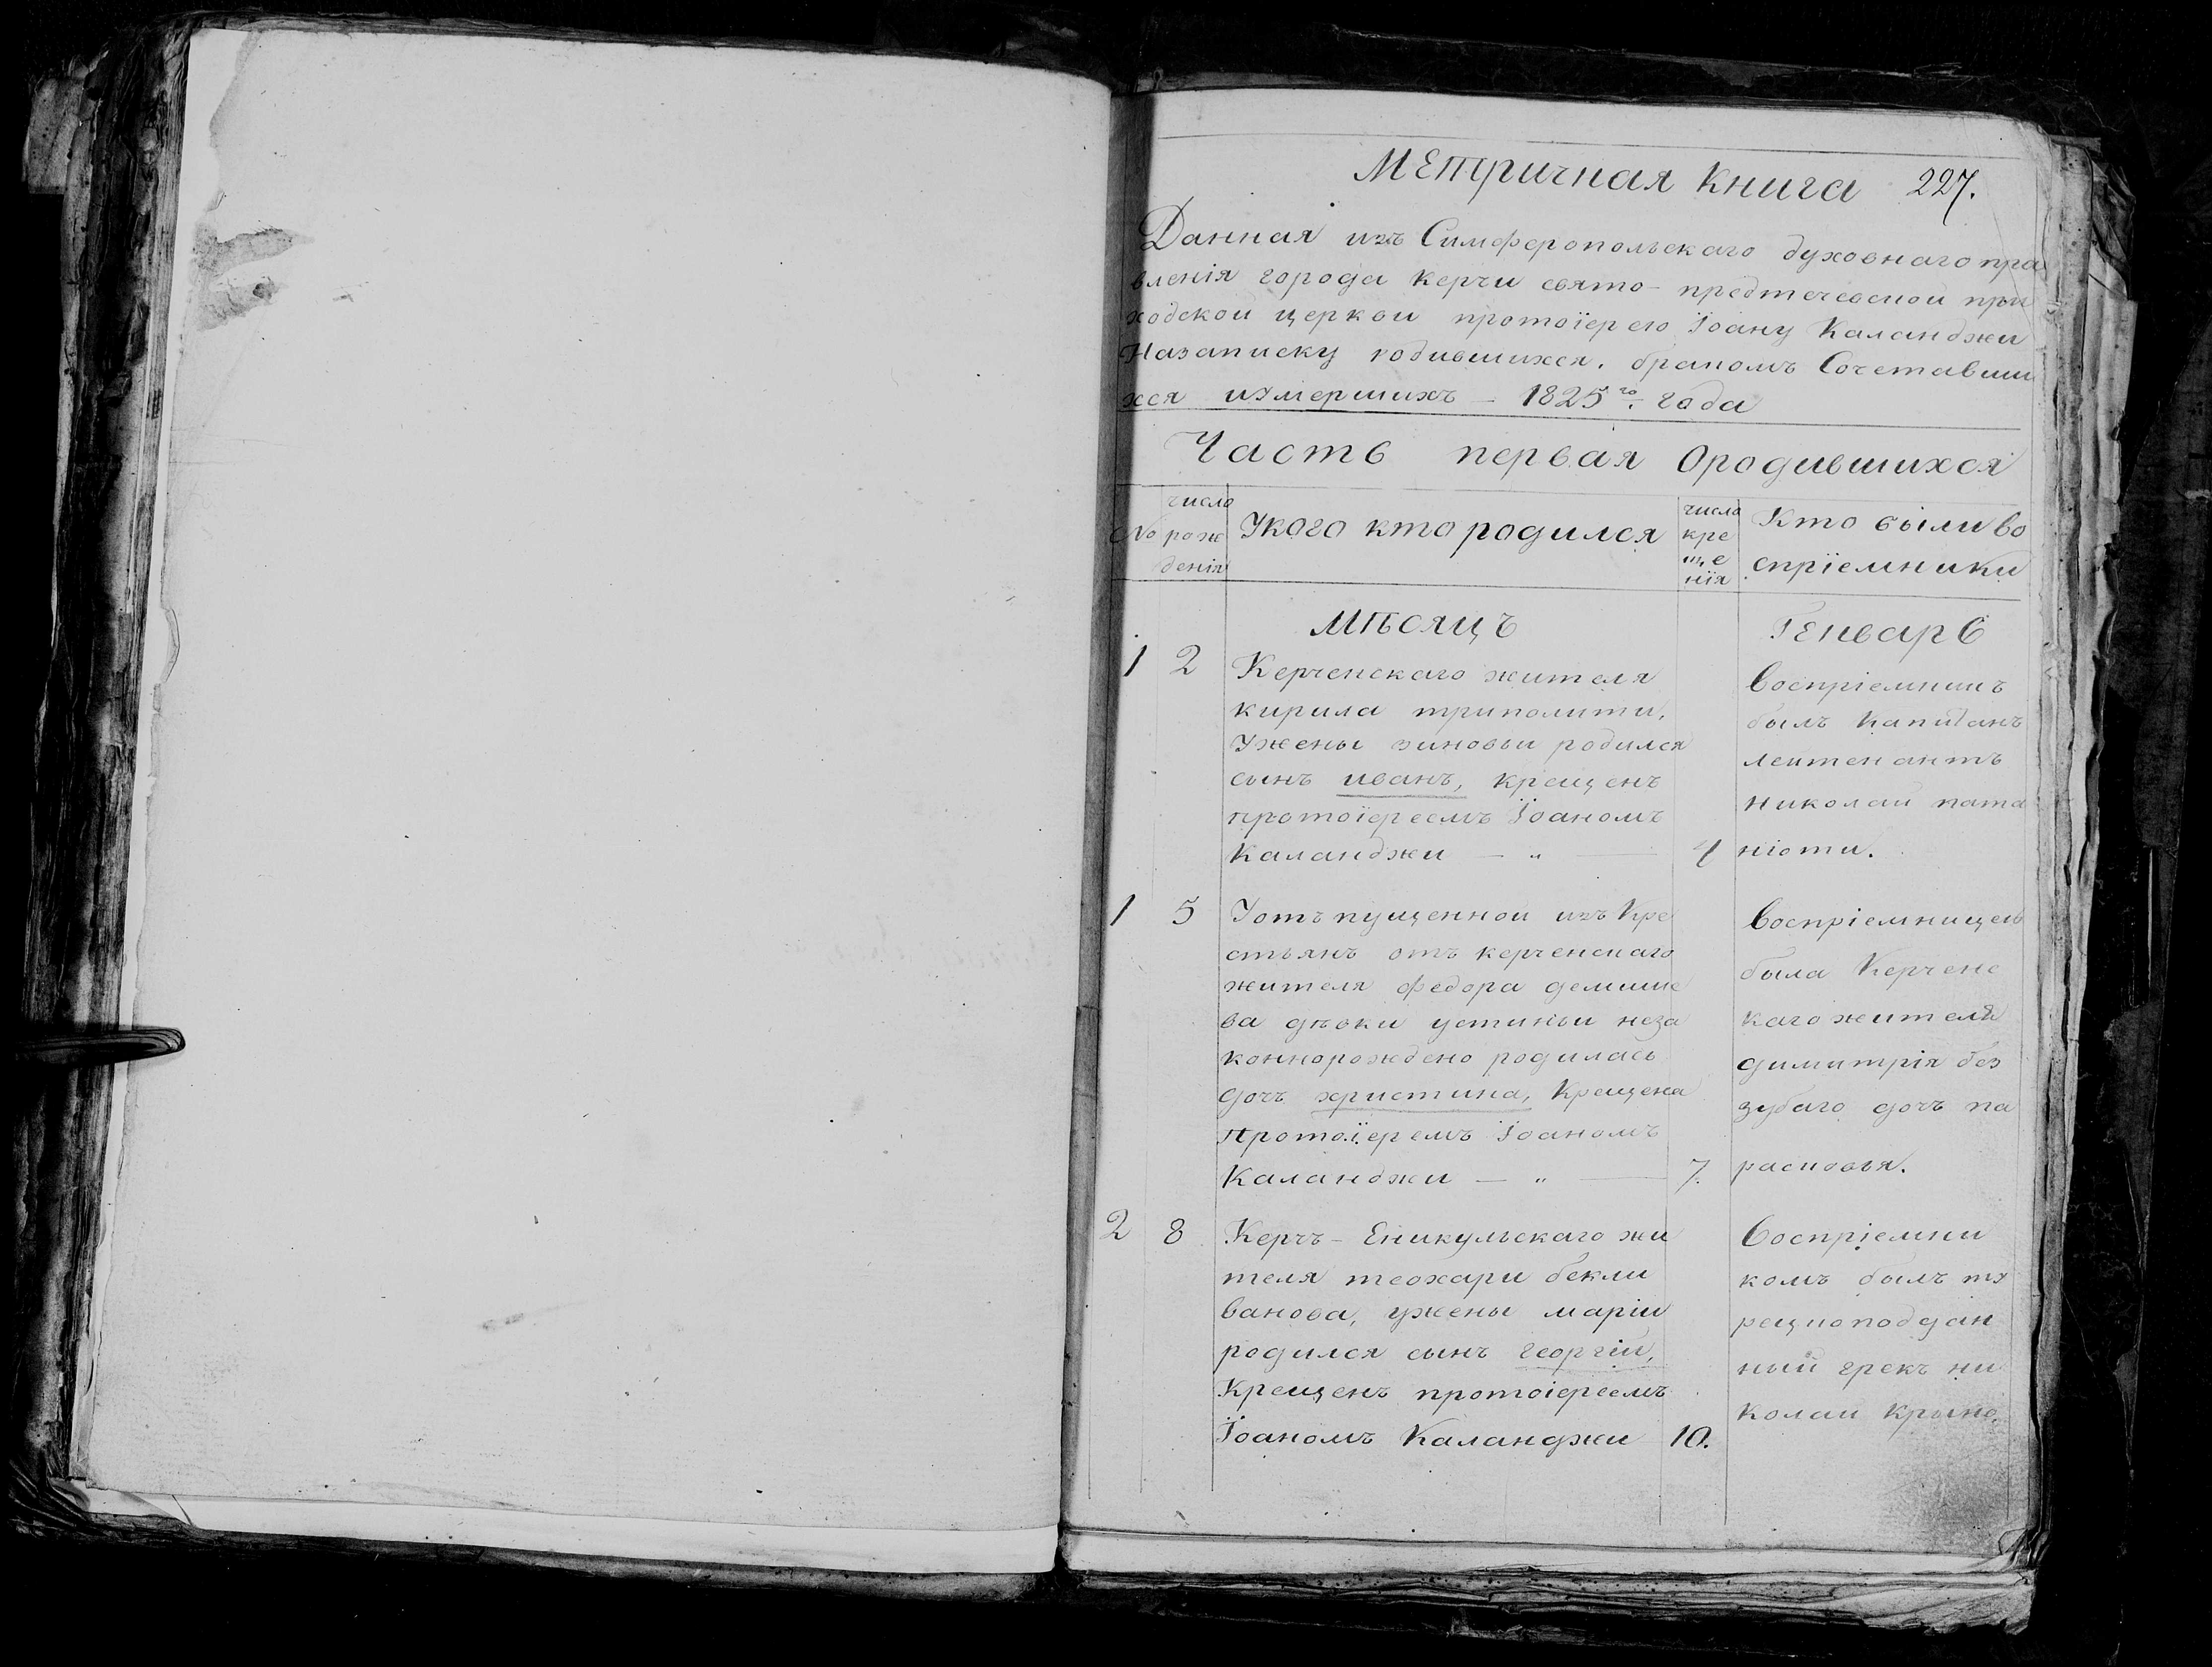 Метричная книга 227.
Данная изъ Симферопольскаго духовнаго пра
вленія города Керчи свято-предтечевской при
ходской церкви протоїерею Їоану Каланджи
Назаписку родившихся. бракомъ Сочетавши
хся иумершихъ — 1825го. года
Часть первая Ородившихся
№
число
рож
денія
Укого кто родился
число
кре
ще
нїя
Кто были во
спріемники
Мѣсяцъ
Генварь
1 2
Керченскаго жителя
кирила триполити,
Ужены зиновьи родился
сынъ иванъ, крещенъ
протоіереемъ Їоаномъ
Каланджи — „ — 4
воспріемникъ
былъ Капитанъ
лейтенантъ
николай пата
ніоти.
1 5
Уотъпущенной изъ Кре
стьянъ отъ керченскаго
жителя федора демише
ва дѣвки устиньи неза
коннорождено родилась
дочъ христина, Крещена
Протоїеремъ Їоаномъ
Каланджи — „ — 7.
воспріемницею
была Керченс
каго жителя
димитрія без
зубаго дочъ па
расковья.
2 8
Керчъ-Еникульскаго жи
теля теохари бекли
ванова, ужены маріи
родился сынъ георгій,
Крещенъ протоіереемъ
Їоаномъ Каланджи 10.
воспріемни
комъ былъ ту
рецкоподдан
ный грекъ ни
колай